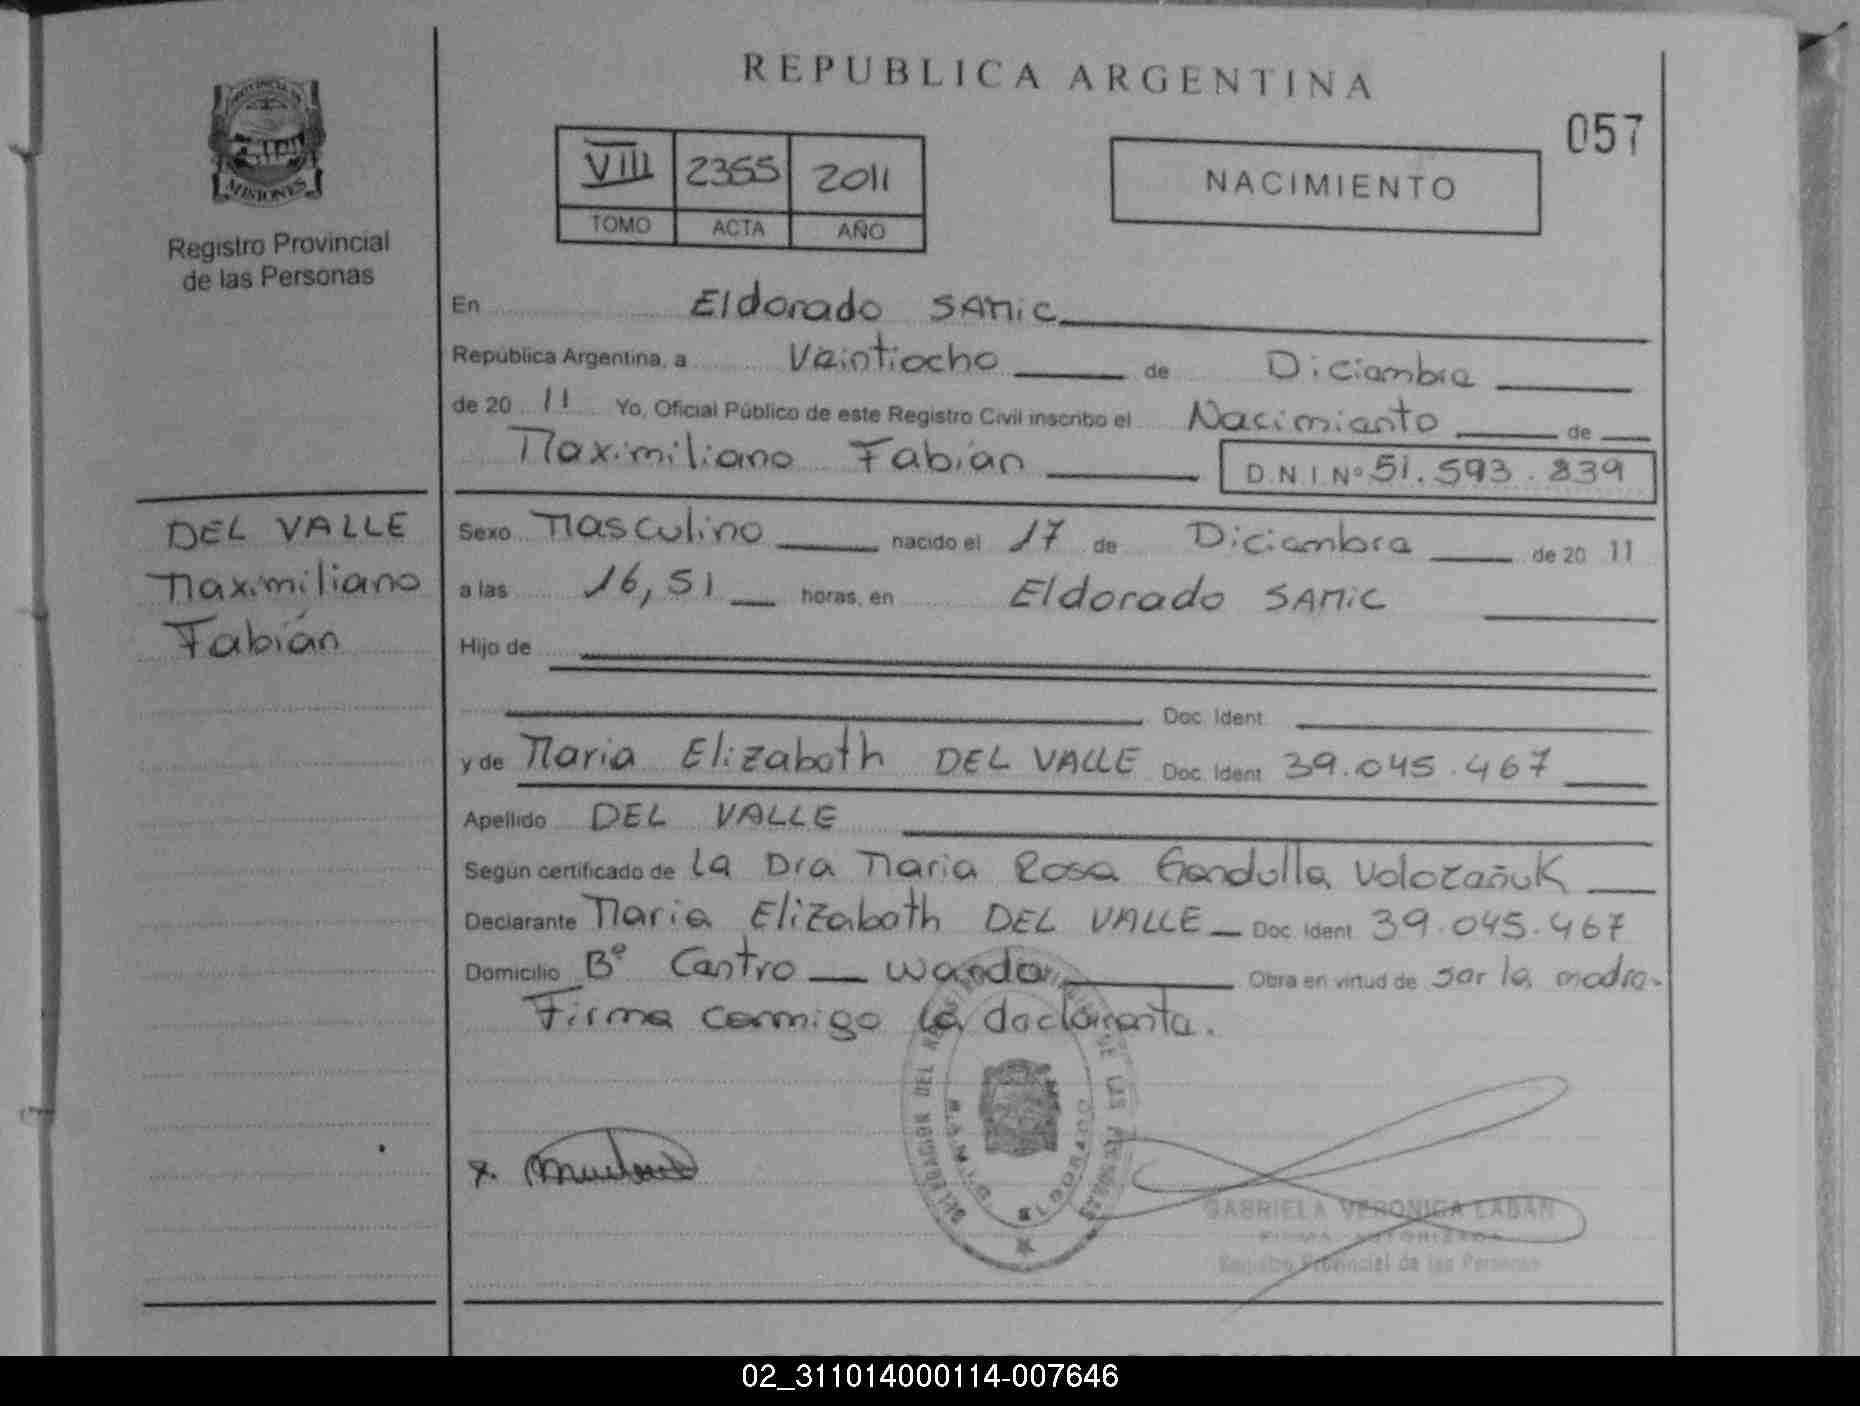 REPUBLICA ARGENTINA
057
PROVINCIA DE
MISIONES
Registro Provincial
de las Personas
VIII 2355 2011
TOMO ACTA AÑO
NACIMIENTO
En Eldorado SAMIC
República Argentina, a Veintiocho de Diciembre
de 20 11 Yo, Oficial Público de este Registro Civil inscribo el Nacimiento de
Maximiliano Fabián D.N.I. Nº 51.593.839
DEL VALLE
Maximiliano
Fabián
Sexo Masculino nacido el 17 de Diciembre de 20 11
a las 16,51 horas, en Eldorado SAMIC
Hijo de
Doc. Ident.
y de Maria Elizabeth DEL VALLE Doc. Ident. 39.045.467
Apellido DEL VALLE
Según certificado de La Dra Maria Rosa
Declarante Maria Elizabeth DEL VALLE Doc. Ident. 39.045.467
Domicilio Bº Castro Wanda Obra en virtud de ser la madre.
Firma conmigo la declarante.
x.
DELEGACION DEL REGISTRO PROVINCIAL DE LAS PERSONAS
S.A.M.I.C. ELDORADO
GABRIELA VERONICA LABAN
FIRMA AUTORIZADA
Registro Provincial de las Personas
02_311014000114-007646